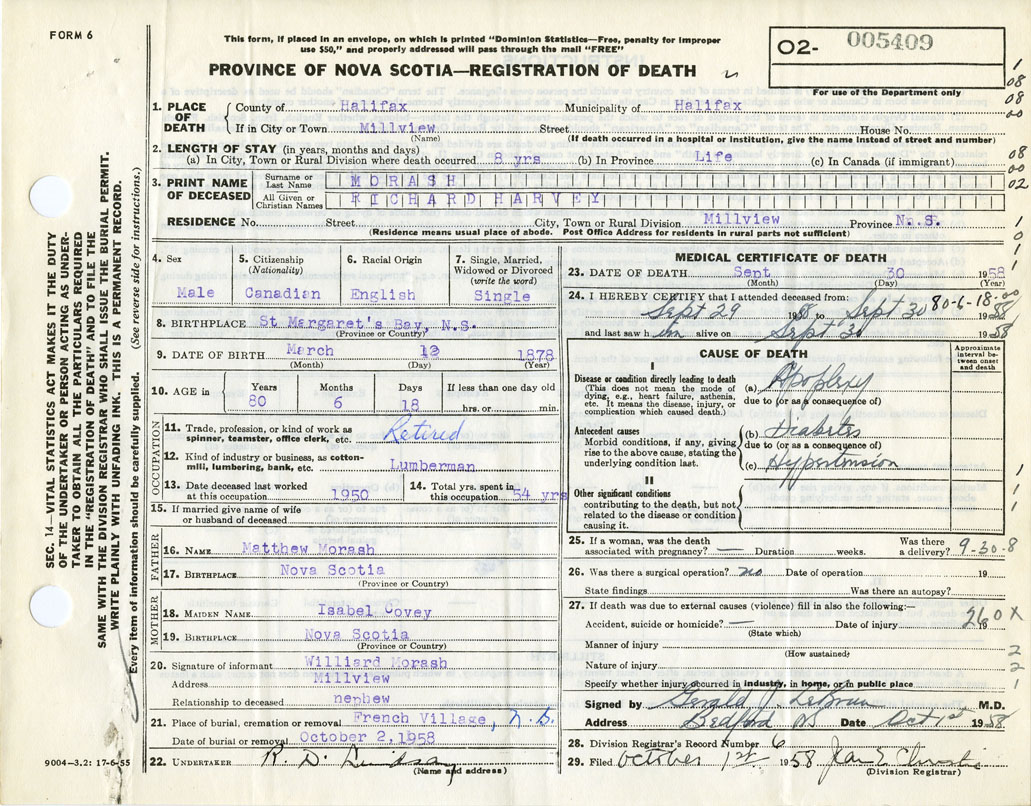 FORM 6
This form, if placed in an envelope, on which is printed "Dominion Statistics—Free, penalty for improper
use $50," and properly addressed will pass through the mail "FREE"
PROVINCE OF NOVA SCOTIA—REGISTRATION OF DEATH
02- 005409
For use of the Department only
1. PLACE OF DEATH
County of Halifax Municipality of Halifax
If in City or Town Millview Street House No.
(Name) (If death occurred in a hospital or institution, give the name instead of street and number)
2. LENGTH OF STAY (in years, months and days)
(a) In City, Town or Rural Division where death occurred 8 yrs (b) In Province Life (c) In Canada (if immigrant)
3. PRINT NAME OF DECEASED
Surname or Last Name MORASH
All Given or Christian Names RICHARD HARVEY
RESIDENCE No. Street City, Town or Rural Division Millview Province N.S.
(Residence means usual place of abode. Post Office Address for residents in rural parts not sufficient)
4. Sex
Male
5. Citizenship (Nationality)
Canadian
6. Racial Origin
English
7. Single, Married, Widowed or Divorced (write the word)
Single
8. BIRTHPLACE St Margaret's Bay, N.S.
(Province or Country)
9. DATE OF BIRTH March 12 1878
(Month) (Day) (Year)
10. AGE in Years Months Days If less than one day old
80 6 18 hrs. or min.
OCCUPATION
11. Trade, profession, or kind of work as
spinner, teamster, office clerk, etc. Retired
12. Kind of industry or business, as cotton-
mill, lumbering, bank, etc. Lumberman
13. Date deceased last worked
at this occupation 1950
14. Total yrs. spent in
this occupation 54 yrs
15. If married give name of wife
or husband of deceased
FATHER
16. NAME Matthew Morash
17. BIRTHPLACE Nova Scotia
(Province or Country)
MOTHER
18. MAIDEN NAME Isabel Covey
19. BIRTHPLACE Nova Scotia
(Province or Country)
20. Signature of informant Williard Morash
Address Millview
Relationship to deceased nephew
21. Place of burial, cremation or removal French Village, N.S.
Date of burial or removal October 2, 1958
22. UNDERTAKER R. D. Lindsay
(Name and address)
9004—3.2: 17-6-55
MEDICAL CERTIFICATE OF DEATH
23. DATE OF DEATH Sept 30 1958
(Month) (Day) (Year)
24. I HEREBY CERTIFY that I attended deceased from:
Sept 29 1958 to Sept 30 1958
80-6-18-00
and last saw him alive on Sept 30 1958
CAUSE OF DEATH
Approximate interval between onset and death
I
Disease or condition directly leading to death
(This does not mean the mode of
dying, e.g., heart failure, asthenia,
etc. It means the disease, injury, or
complication which caused death.)
(a) Apoplexy
due to (or as a consequence of)
Antecedent causes
Morbid conditions, if any, giving
rise to the above cause, stating the
underlying condition last.
(b) Diabetes
due to (or as a consequence of)
(c) Hypertension
II
Other significant conditions
contributing to the death, but not
related to the disease or condition
causing it.
25. If a woman, was the death
associated with pregnancy? — Duration weeks. Was there a delivery? 9-30-8
26. Was there a surgical operation? no Date of operation 19
State findings Was there an autopsy?
27. If death was due to external causes (violence) fill in also the following:—
Accident, suicide or homicide? — Date of injury 19
(State which)
260X
Manner of injury
(How sustained)
Nature of injury
Specify whether injury occurred in industry, in home, or in public place
Signed by Gerald J. LeBrun M.D.
Address Bedford NS Date Oct 1st 1958
28. Division Registrar's Record Number 6
29. Filed October 1st 1958 Jean E. Christie
(Division Registrar)
SEC. 14—VITAL STATISTICS ACT MAKES IT THE DUTY
OF THE UNDERTAKER OR PERSON ACTING AS UNDER-
TAKER TO OBTAIN ALL THE PARTICULARS REQUIRED
IN THE "REGISTRATION OF DEATH" AND TO FILE THE
SAME WITH THE DIVISION REGISTRAR WHO SHALL ISSUE THE BURIAL PERMIT.
WRITE PLAINLY WITH UNFADING INK. THIS IS A PERMANENT RECORD.
Every item of information should be carefully supplied. (See reverse side for instructions.)
1
08
08
00
08
00
02
1
0
1
1
1
1
2
2
1